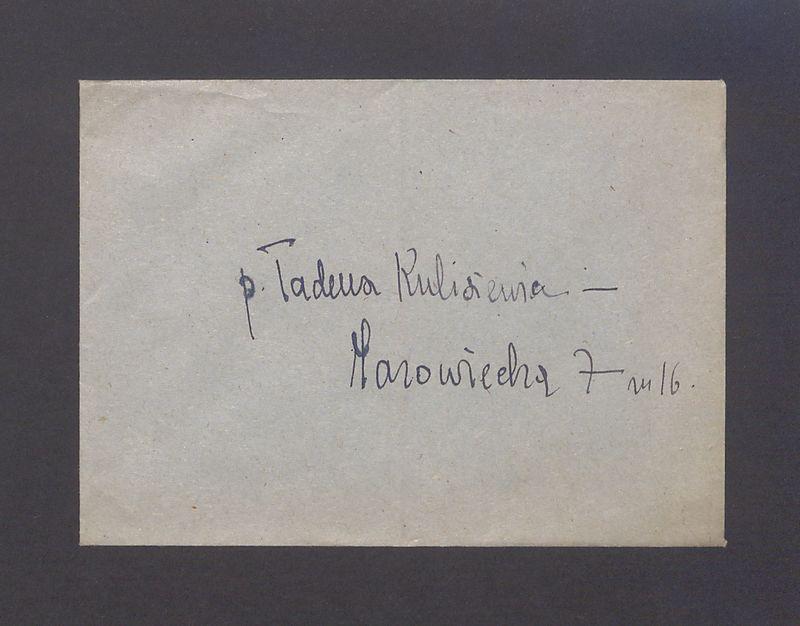 p. Tadeusz Kulisiewicz —
Mazowiecka 7 m 16.